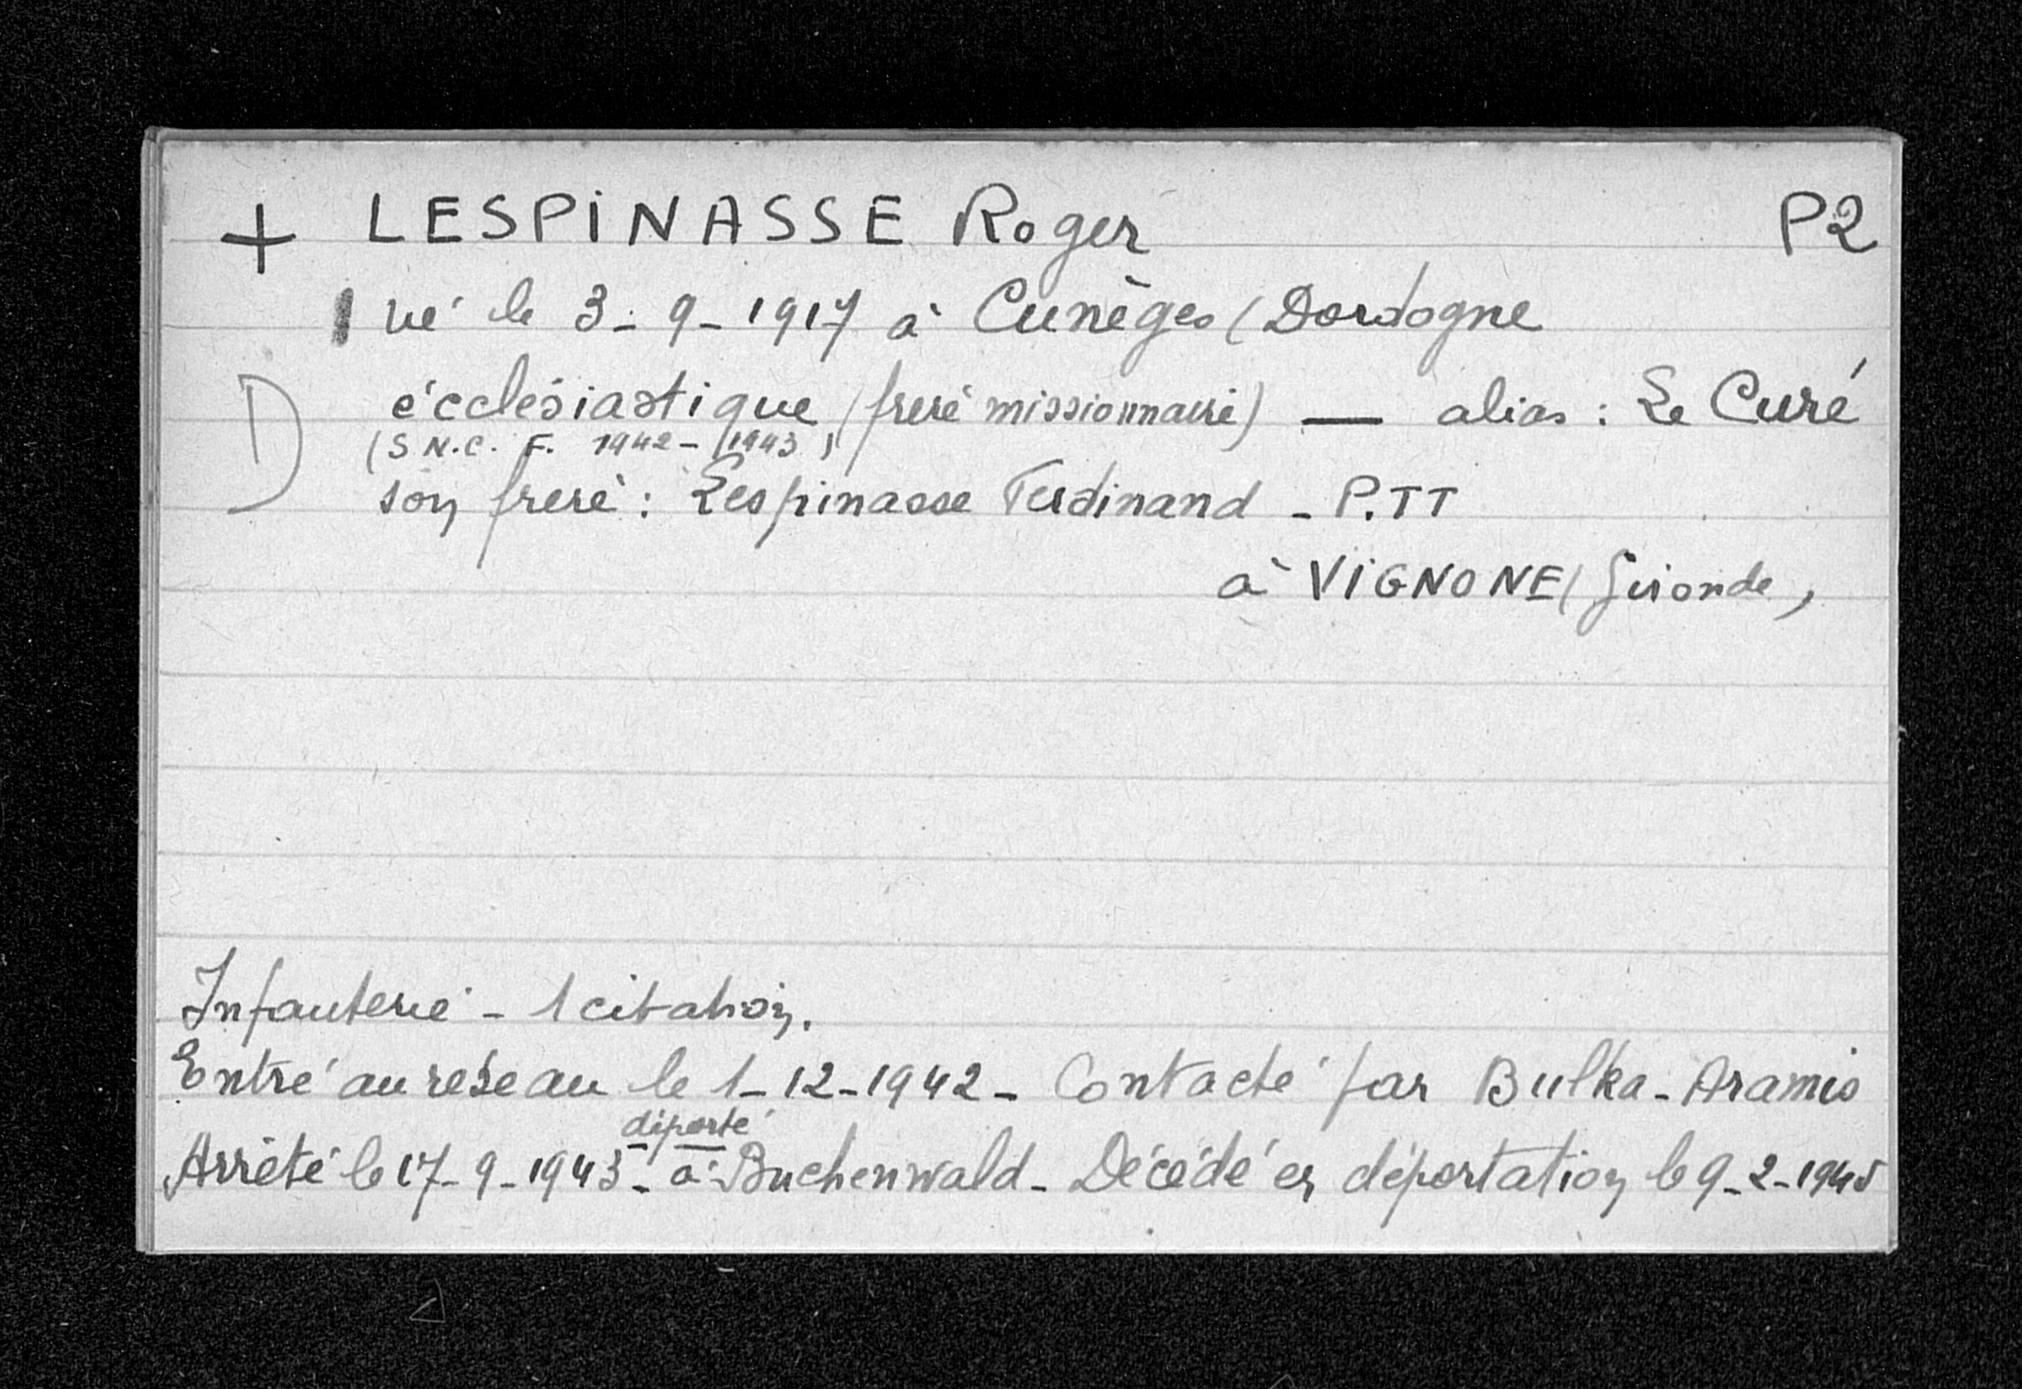 + LESPINASSE Roger P2
né le 3-9-1917 à Cunèges (Dordogne
D écclésiastique (freré missionnairé) — alias : Le Curé
(S N.C. F. 1942-1943)
son freré : Lespinasse Ferdinand - P.TT
à VIGNONE (Gironde,
Infanterie - 1 citation.
Entré au reseau le 1-12-1942 - Contacté par Bulka-Aramis
déporté
Arrêté le 17-9-1943- à Buchenwald - Décédé en déportation le 9-2-1945